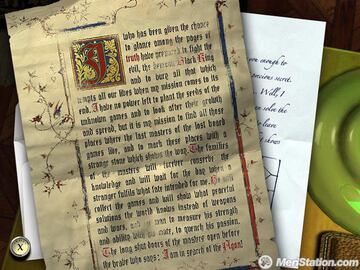 who has been given the chance
to glance among the pages of
truth have prepared to fight the
evil, the Black King
and to bury all that which
tempts all our lives when my mission comes to its
end. I have no power left to plant the seeds of the
unknown games and to look after their growth
and spread, but it is my mission to find all those
places where the last masters of the lost board
games live, and to mark these places with a
strange stone which shows the way. The families
of the masters will forever conserve the
knowledge and will wait for the day when a
stranger fulfils what fate intended for me. He will
collect the games and will show what peaceful
solutions the world knows instead of weapons
and wars, and man to measure his strength
and abilities with no more, to quench his passion.
The long shut doors of the masters open before
the bearer who says: I am in search of the Agon!
enough to
precious secret.
Will, I
solve the
leave
shows
X
© MeriStation.com